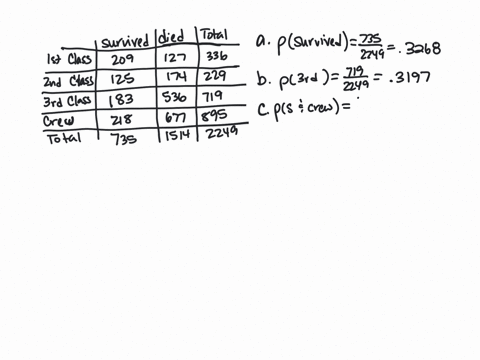 survived died Total
1st Class 209 127 336
2nd Class 125 174 229
3rd Class 183 536 719
Crew 218 677 895
Total 735 1514 2249
a. p(survived) = 735/2249 = .3268
b. p(3rd) = 719/2249 = .3197
c. p(s & crew) =